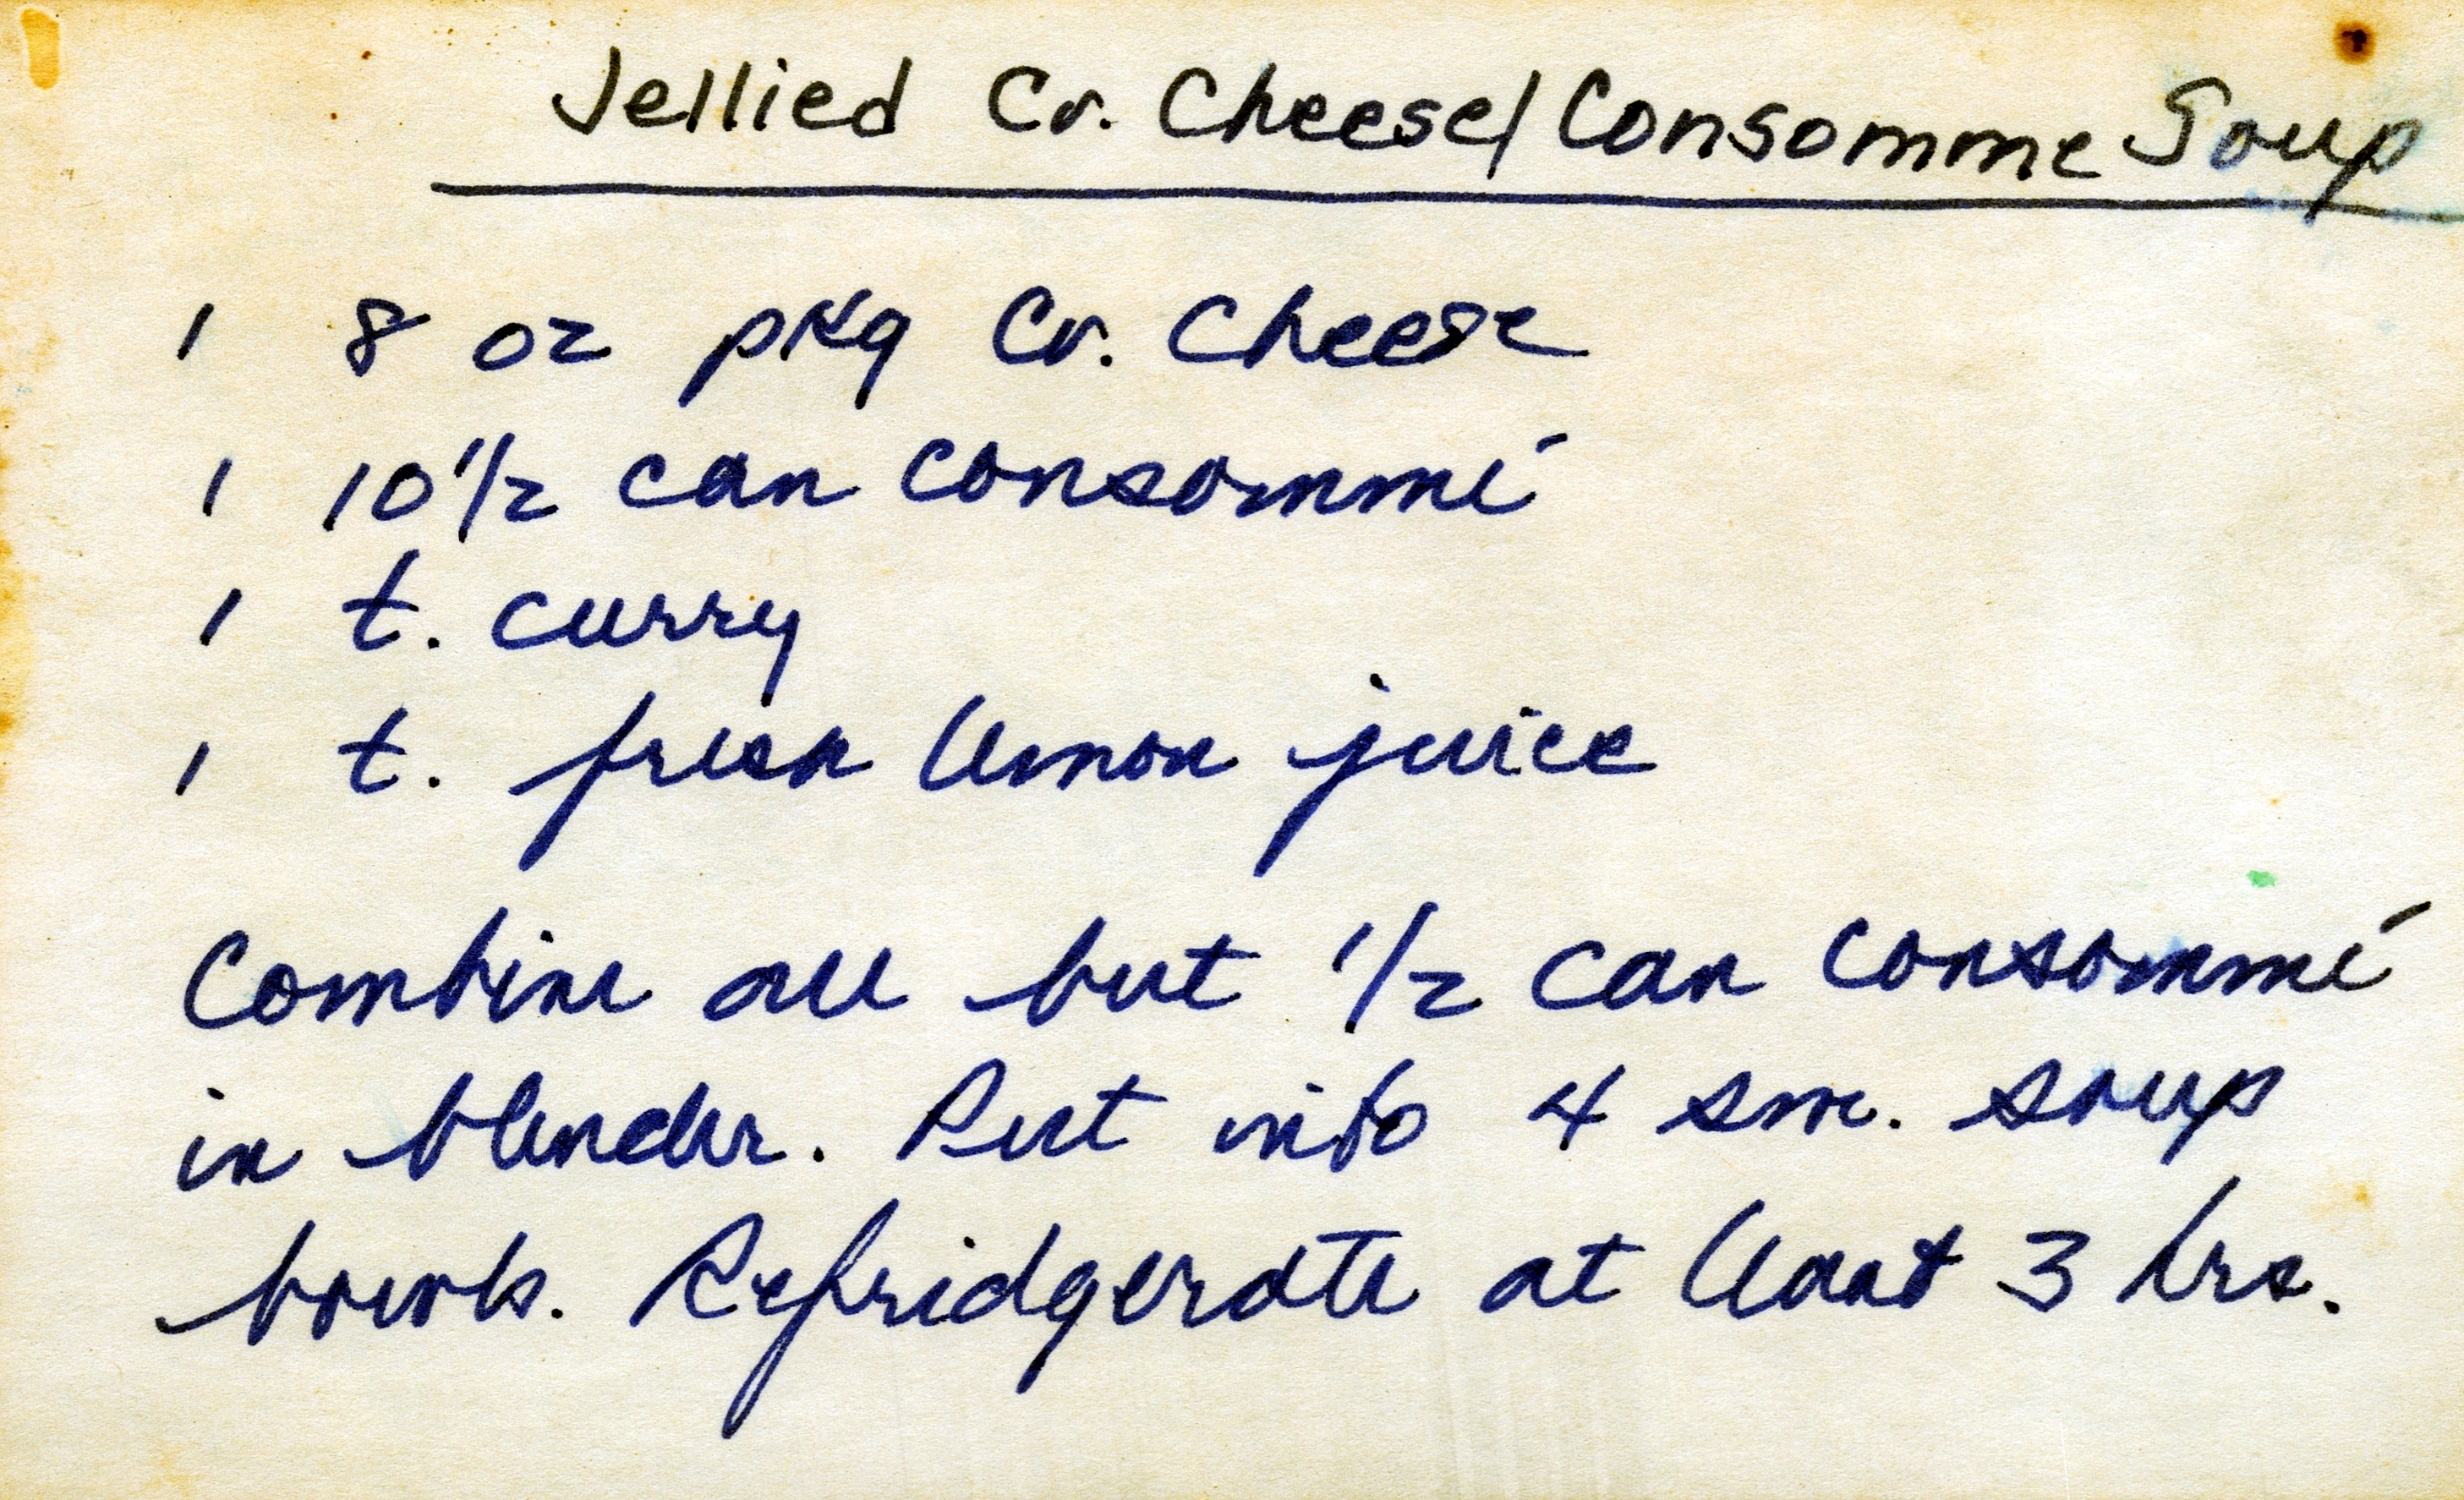 Jellied Cr. Cheese/Consomme Soup
1 8 oz pkg Cr. Cheese
1 10 1/2 can consommé
1 t. curry
1 t. fresh lemon juice
Combine all but 1/2 can consommé
in blender. Put into 4 sm. soup
bowls. Refridgerate at least 3 hrs.